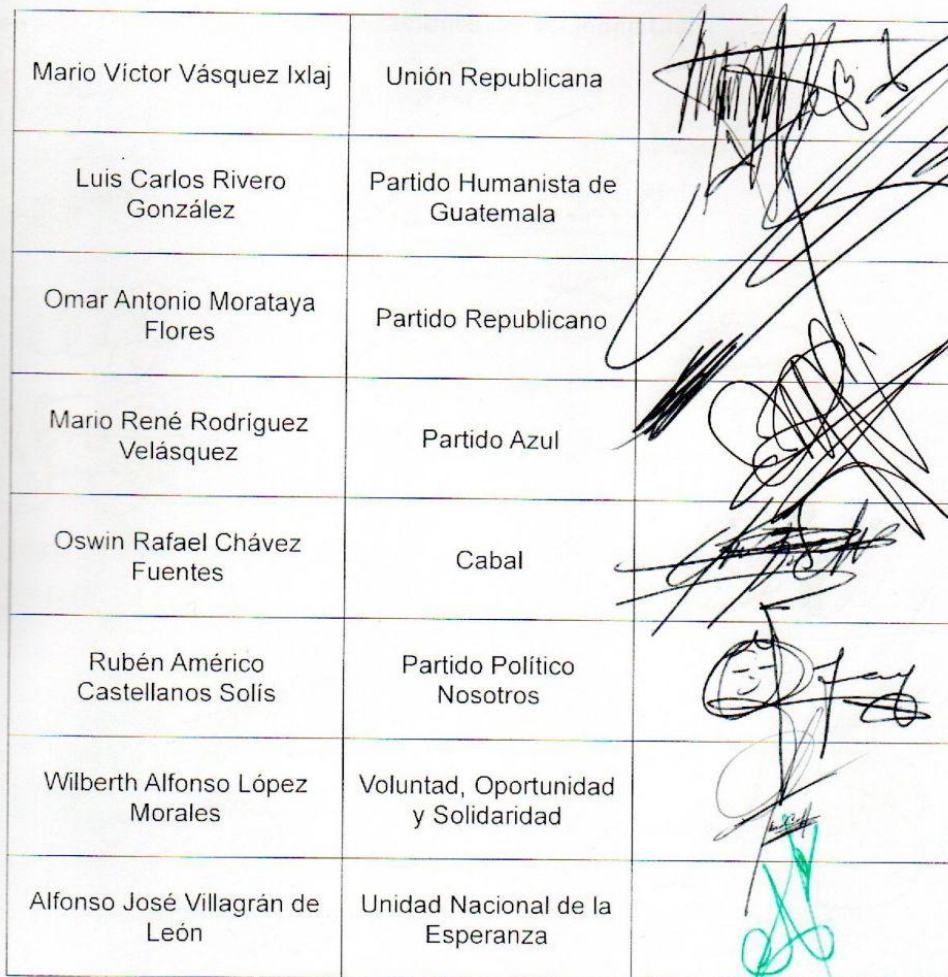 Mario Víctor Vásquez Ixlaj
Unión Republicana
Luis Carlos Rivero
González
Partido Humanista de
Guatemala
Omar Antonio Morataya
Flores
Partido Republicano
Mario René Rodríguez
Velásquez
Partido Azul
Oswin Rafael Chávez
Fuentes
Cabal
Rubén Américo
Castellanos Solís
Partido Político
Nosotros
Wilberth Alfonso López
Morales
Voluntad, Oportunidad
y Solidaridad
Alfonso José Villagrán de
León
Unidad Nacional de la
Esperanza